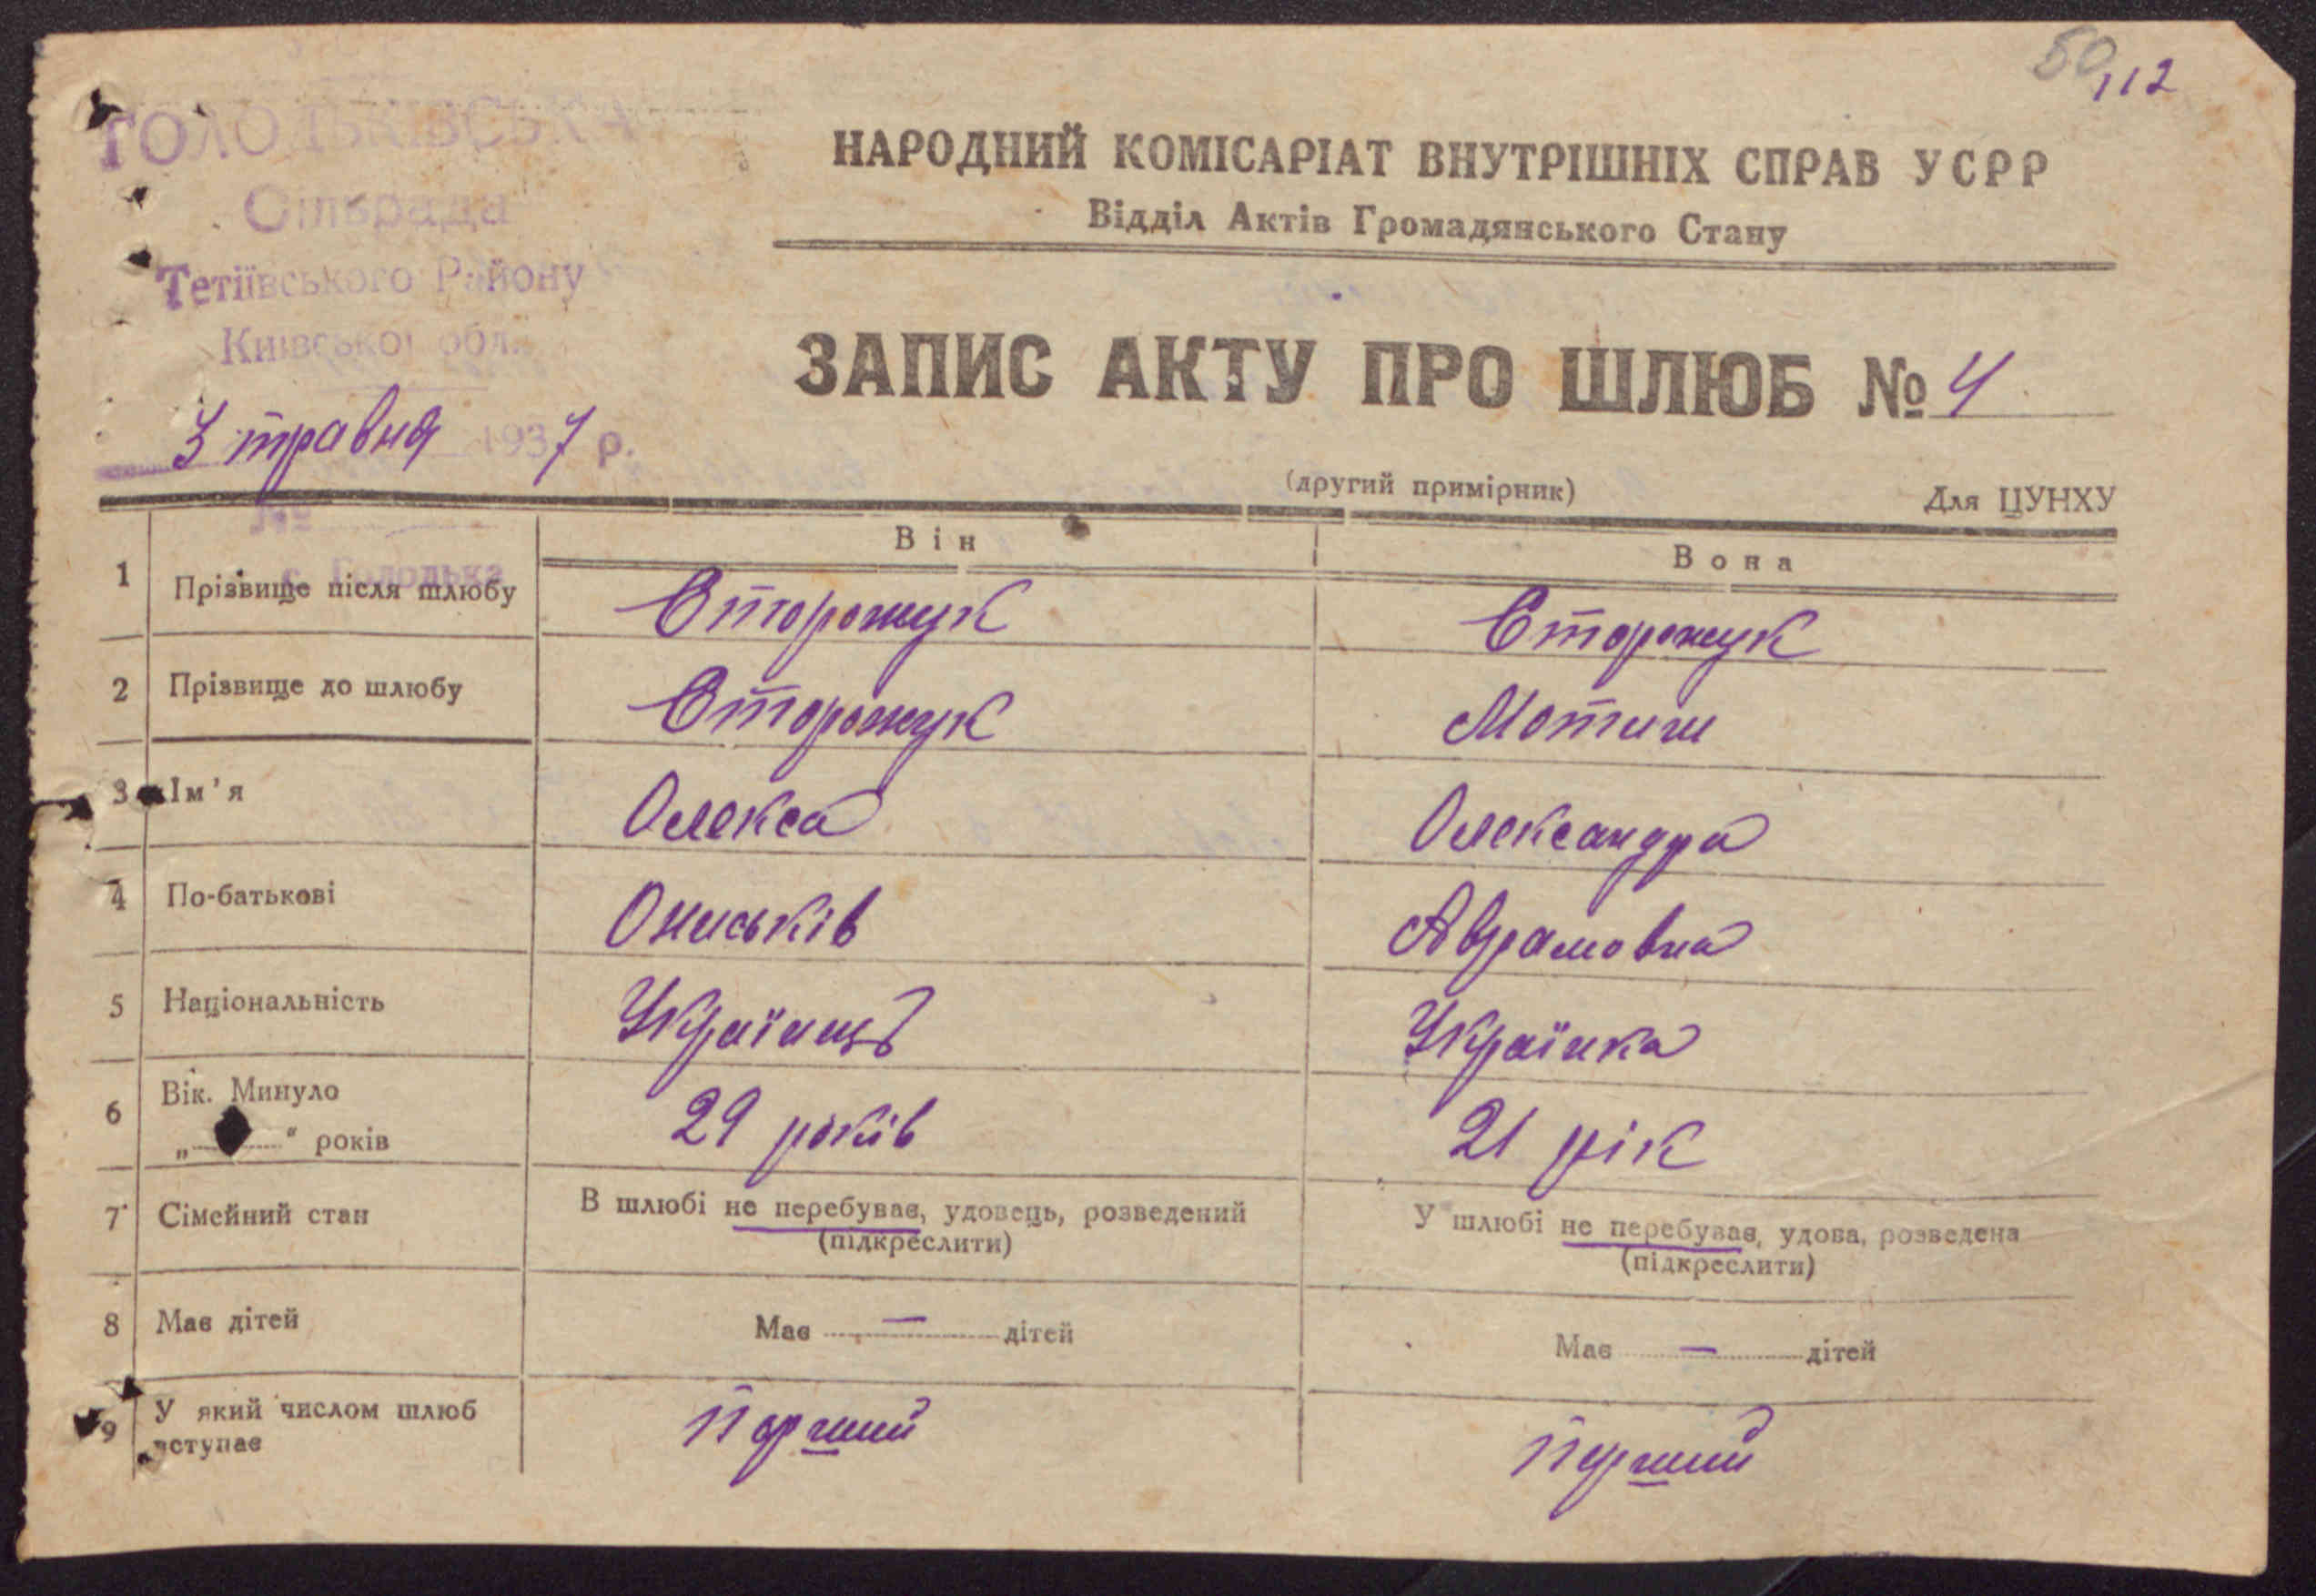 50 112
ГОЛОДЬКІВСЬКА
Сільрада
Тетіївського Району
Київської обл.
3 травня 1937 р.
№
с. Голодька
НАРОДНИЙ КОМІСАРІАТ ВНУТРІШНІХ СПРАВ УСРР
Відділ Актів Громадянського Стану
ЗАПИС АКТУ ПРО ШЛЮБ № 4
(другий примірник)
Для ЦУНХУ
Він Вона
1 Прізвище після шлюбу Сторожук Сторожук
2 Прізвище до шлюбу Сторожук
3 Ім'я Олекса Олександра
4 По-батькові Ониськів Аврамовна
5 Національність Українець Українка
6 Вік. Минуло
„ “ років 29 років 21 рік
7 Сімейний стан В шлюбі не перебуває, удовець, розведений У шлюбі не перебуває, удова, розведена
(підкреслити) (підкреслити)
8 Має дітей Має — дітей Має — дітей
9 У який числом шлюб
вступає Перший Перший